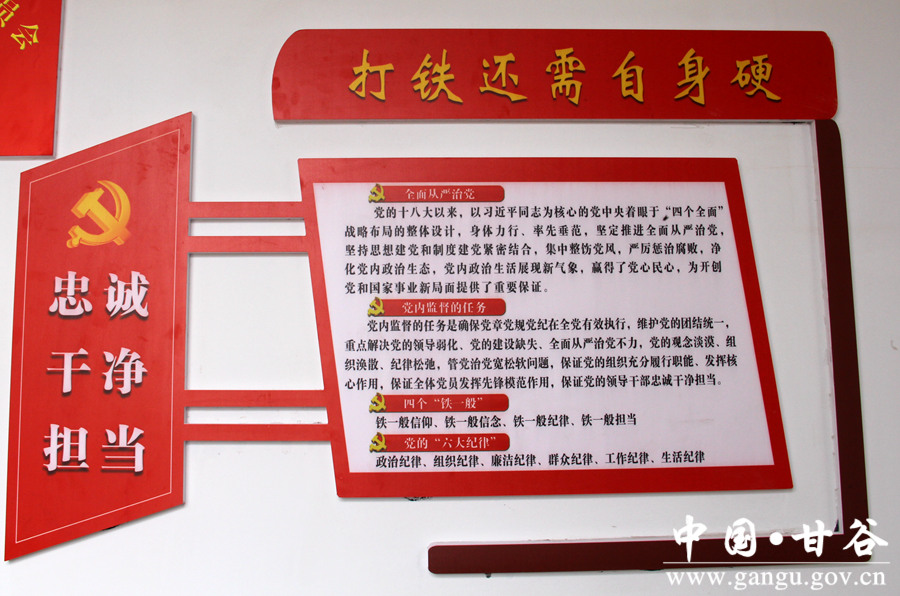 员会
打铁还需自身硬
忠诚
干净
担当
全面从严治党
党的十八大以来，以习近平同志为核心的党中央着眼于“四个全面”
战略布局的整体设计，身体力行、率先垂范，坚定推进全面从严治党，
坚持思想建党和制度建党紧密结合，集中整饬党风，严厉惩治腐败，净
化党内政治生态，党内政治生活展现新气象，赢得了党心民心，为开创
党和国家事业新局面提供了重要保证。
党内监督的任务
党内监督的任务是确保党章党规党纪在全党有效执行，维护党的团结统一，
重点解决党的领导弱化、党的建设缺失、全面从严治党不力，党的观念淡漠、组
织涣散、纪律松弛，管党治党宽松软问题，保证党的组织充分履行职能、发挥核
心作用，保证全体党员发挥先锋模范作用，保证党的领导干部忠诚干净担当。
四个“铁一般”
铁一般信仰、铁一般信念、铁一般纪律、铁一般担当
党的“六大纪律”
政治纪律、组织纪律、廉洁纪律、群众纪律、工作纪律、生活纪律
中国·甘谷
www.gangu.gov.cn